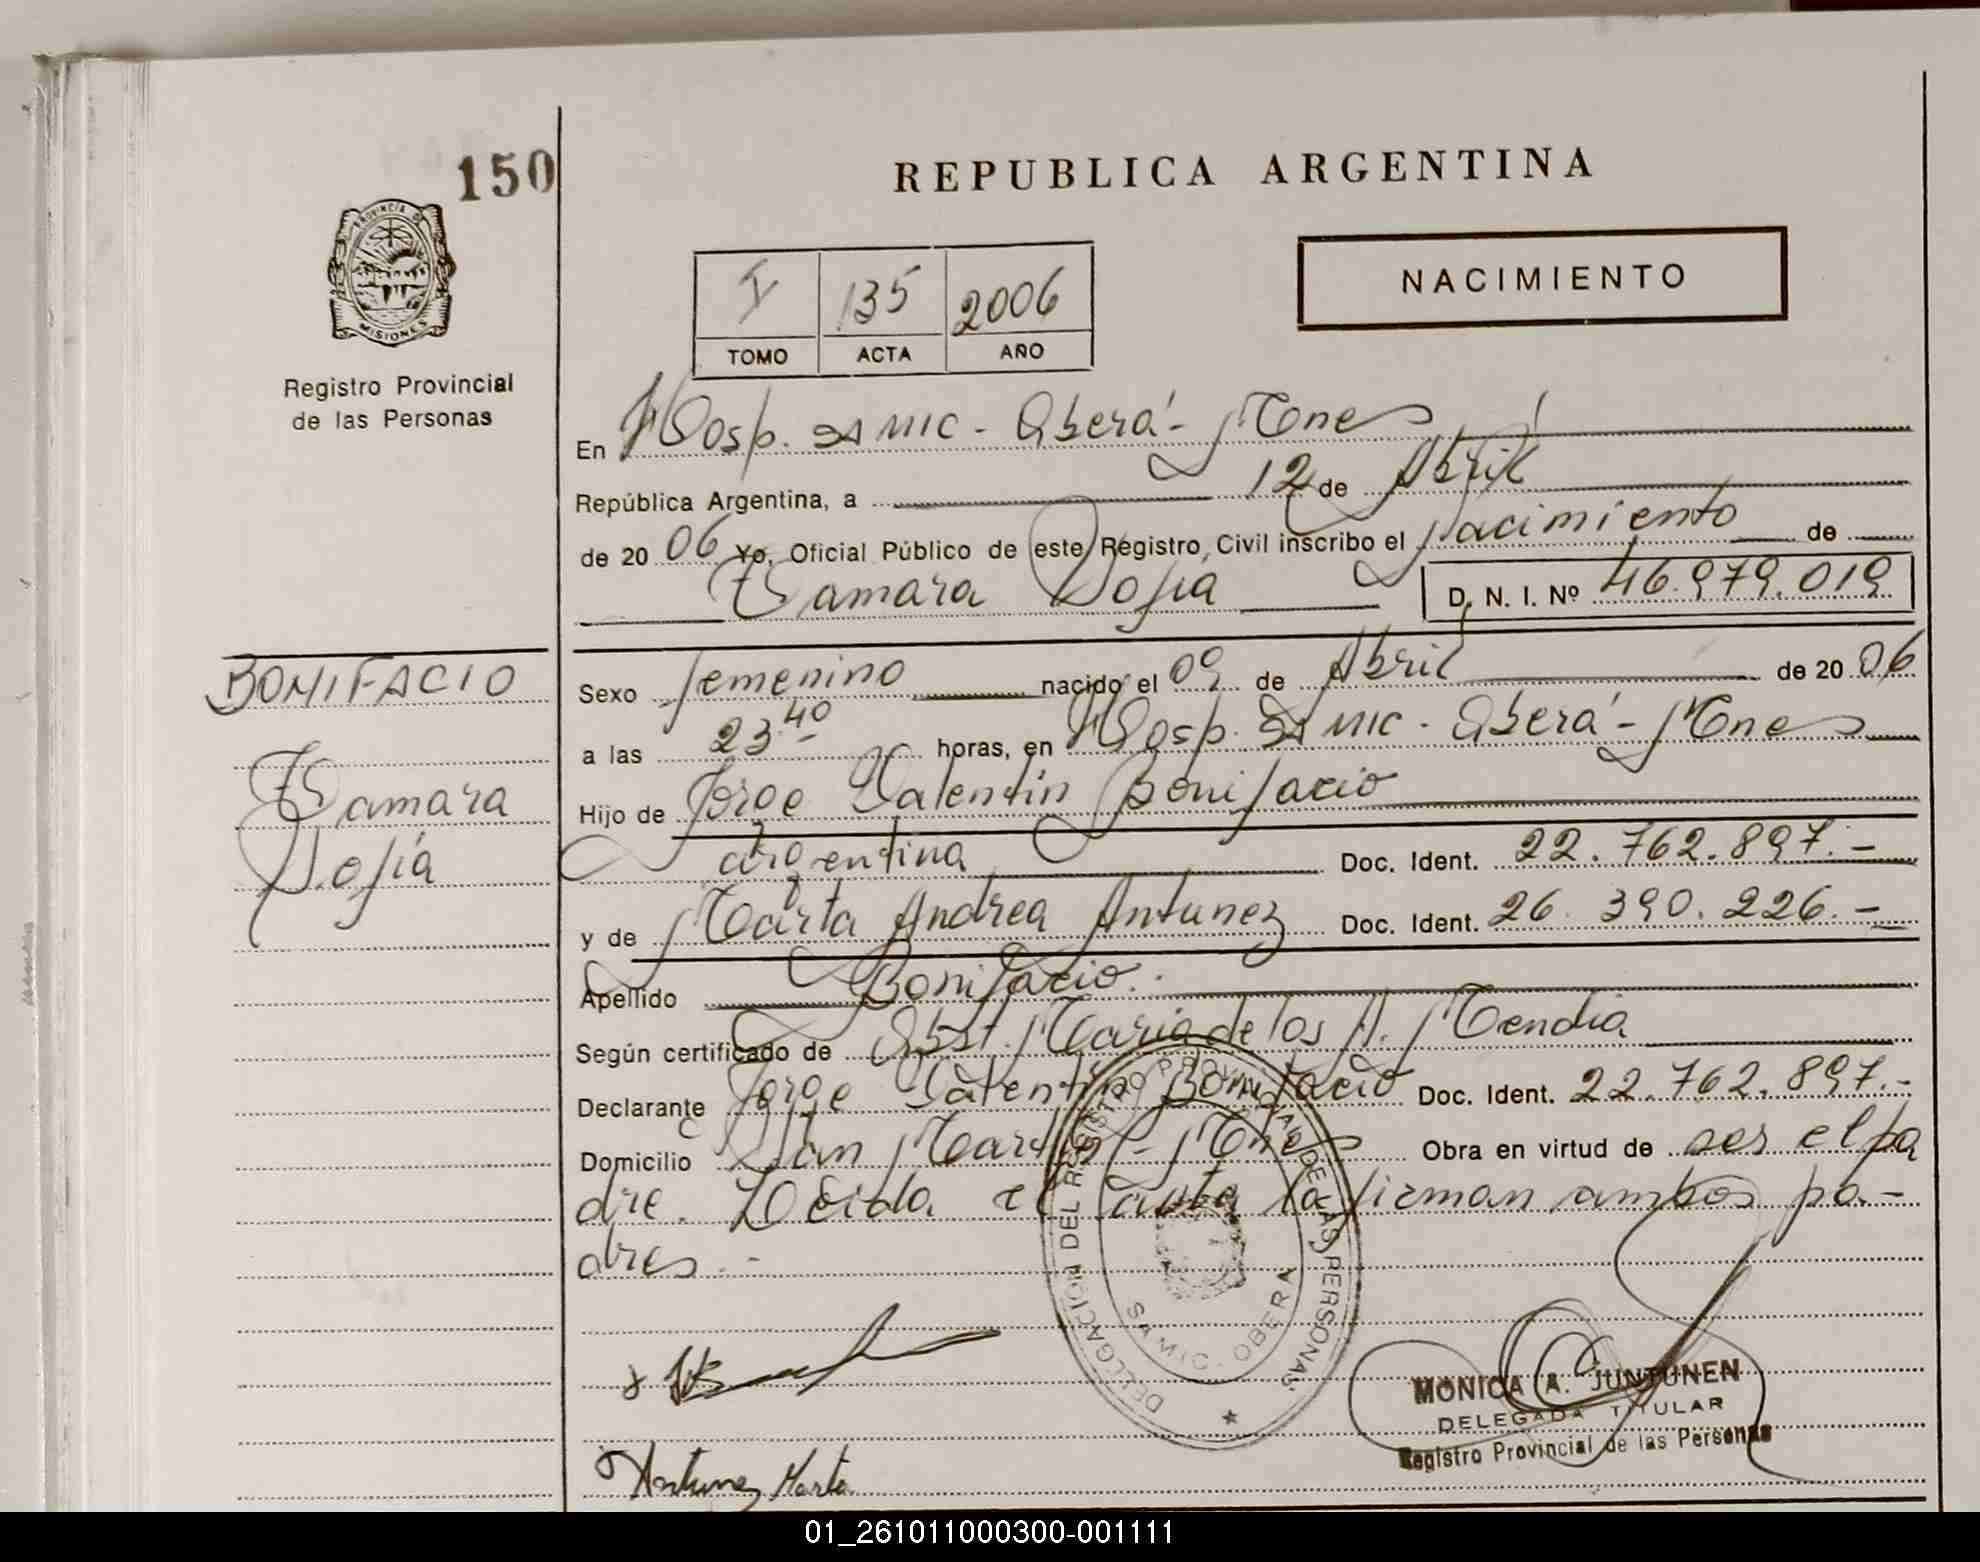 150
REPUBLICA ARGENTINA
PROVINCIA DE
MISIONES
Registro Provincial
de las Personas
I 135 2006
TOMO ACTA AÑO
NACIMIENTO
En Hosp. SAMIC - Oberá - Mnes
República Argentina, a 12 de Abril
de 20 06 Yo, Oficial Público de este Registro Civil inscribo el Nacimiento de
Tamara Sofía D. N. I. Nº 46.979.019
BONIFACIO
Tamara
Sofía
Sexo femenino nacido el 09 de Abril de 20 06
a las 23.40 horas, en Hosp. SAMIC - Oberá - Mnes
Hijo de Jorge Valentín Bonifacio
argentina Doc. Ident. 22.762.897.-
y de Marta Andrea Antunez Doc. Ident. 26.390.226.-
Apellido Bonifacio.
Según certificado de Obst. Maria de los A. Mendia
Declarante Jorge Valentín Bonifacio Doc. Ident. 22.762.897.-
Domicilio San Martín - Mnes Obra en virtud de ser el pa
dre. Leida el acta la firman ambos pa-
dres.-
DELEGACION DEL REGISTRO PROVINCIAL DE LAS PERSONAS
SAMIC. OBERA
MONICA A. JUNTUNEN
DELEGADA TITULAR
Registro Provincial de las Personas
Antunez Marta
01_261011000300-001111